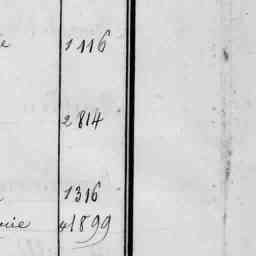 1116
2814
1316
41899